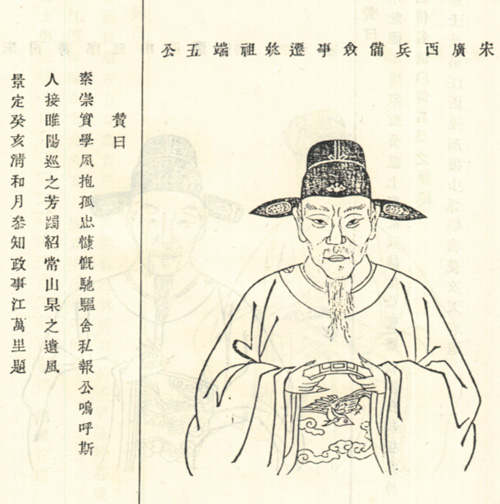 宋廣西兵備僉事遷姚祖端五公
贊曰
素崇實學夙抱孤忠慷慨馳驅舍私報公嗚呼斯
人接睢陽巡之芳躅紹常山杲之遺風
景定癸亥清和月參知政事江萬里題